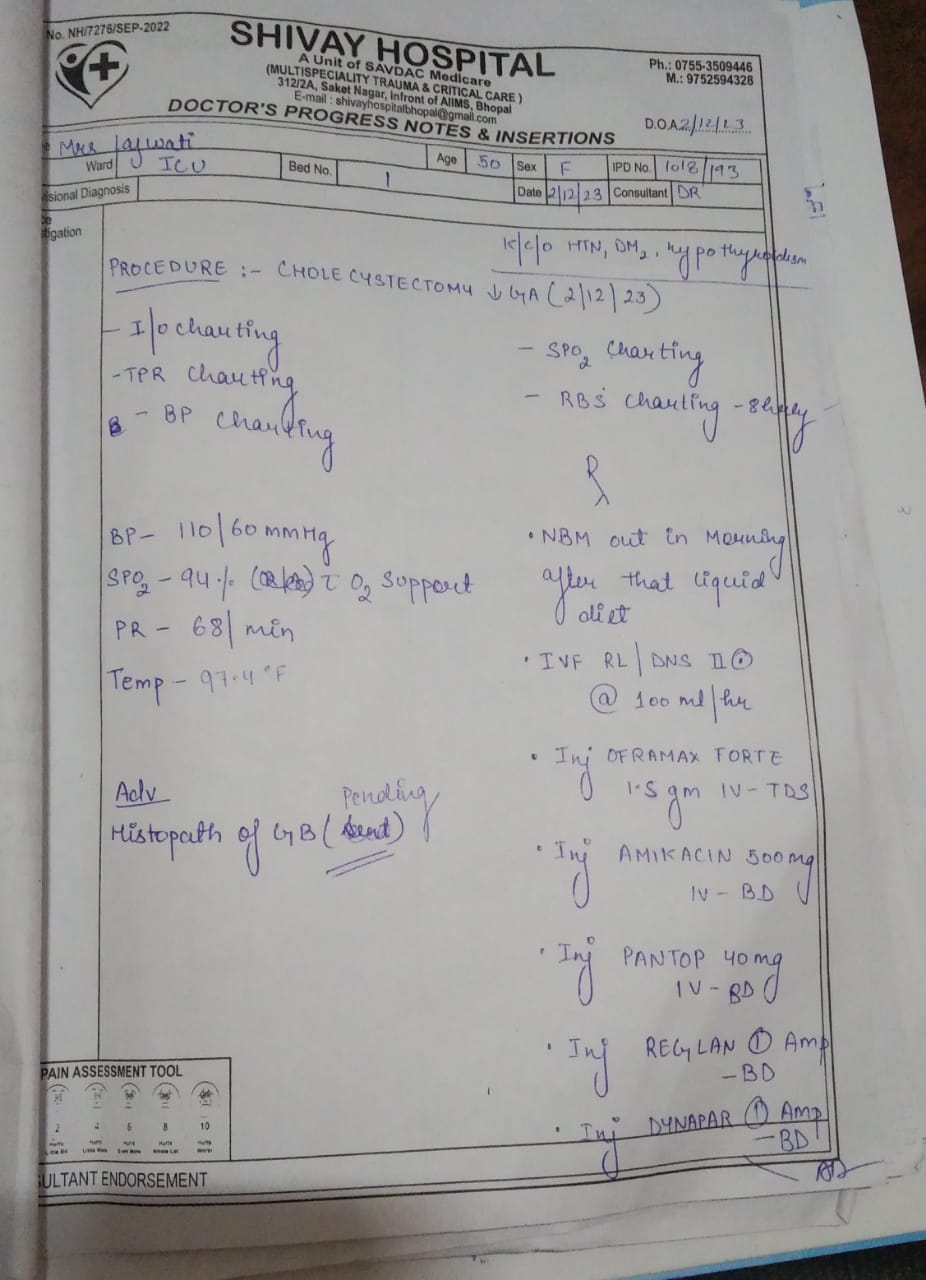 No. NH/7276/SEP-2022
SHIVAY HOSPITAL
A Unit of SAVDAC Medicare
(MULTISPECIALITY TRAUMA & CRITICAL CARE)
312/2A, Saket Nagar, Infront of AIIMS, Bhopal
E-mail : shivayhospitalbhopal@gmail.com
Ph.: 0755-3509446
M.: 9752594328
DOCTOR'S PROGRESS NOTES & INSERTIONS
D.O.A 2/12/23
Mrs Lajwati
Ward ICU Bed No. 1 Age 50 Sex F IPD No. 1018/193
isional Diagnosis Date 2/12/23 Consultant DR
tigation
K/C/O HTN, DM2, Hypothyroidism
PROCEDURE :- CHOLECYSTECTOMY ↓ GA (2/12/23)
- I/o charting
- TPR Charting
- BP Charting
- SPO2 Charting
- RBS Charting - 8hrly
BP - 110/60 mmHg
SPO2 - 94% c̄ O2 Support
PR - 68/min
Temp - 97.4°F
Adv
Histopath of GB ( Pending )
℞
• NBM out in Morning
after that liquid
diet
• IVF RL/DNS II
@ 100 ml/hr
• Inj OFRAMAX FORTE
1.5 gm IV - TDS
• Inj AMIKACIN 500mg
IV - BD
• Inj PANTOP 40mg
IV - BD
• Inj REGLAN ① Amp
- BD
• Inj DYNAPAR ① Amp
- BD
PAIN ASSESSMENT TOOL
2 4 6 8 10
ULTANT ENDORSEMENT